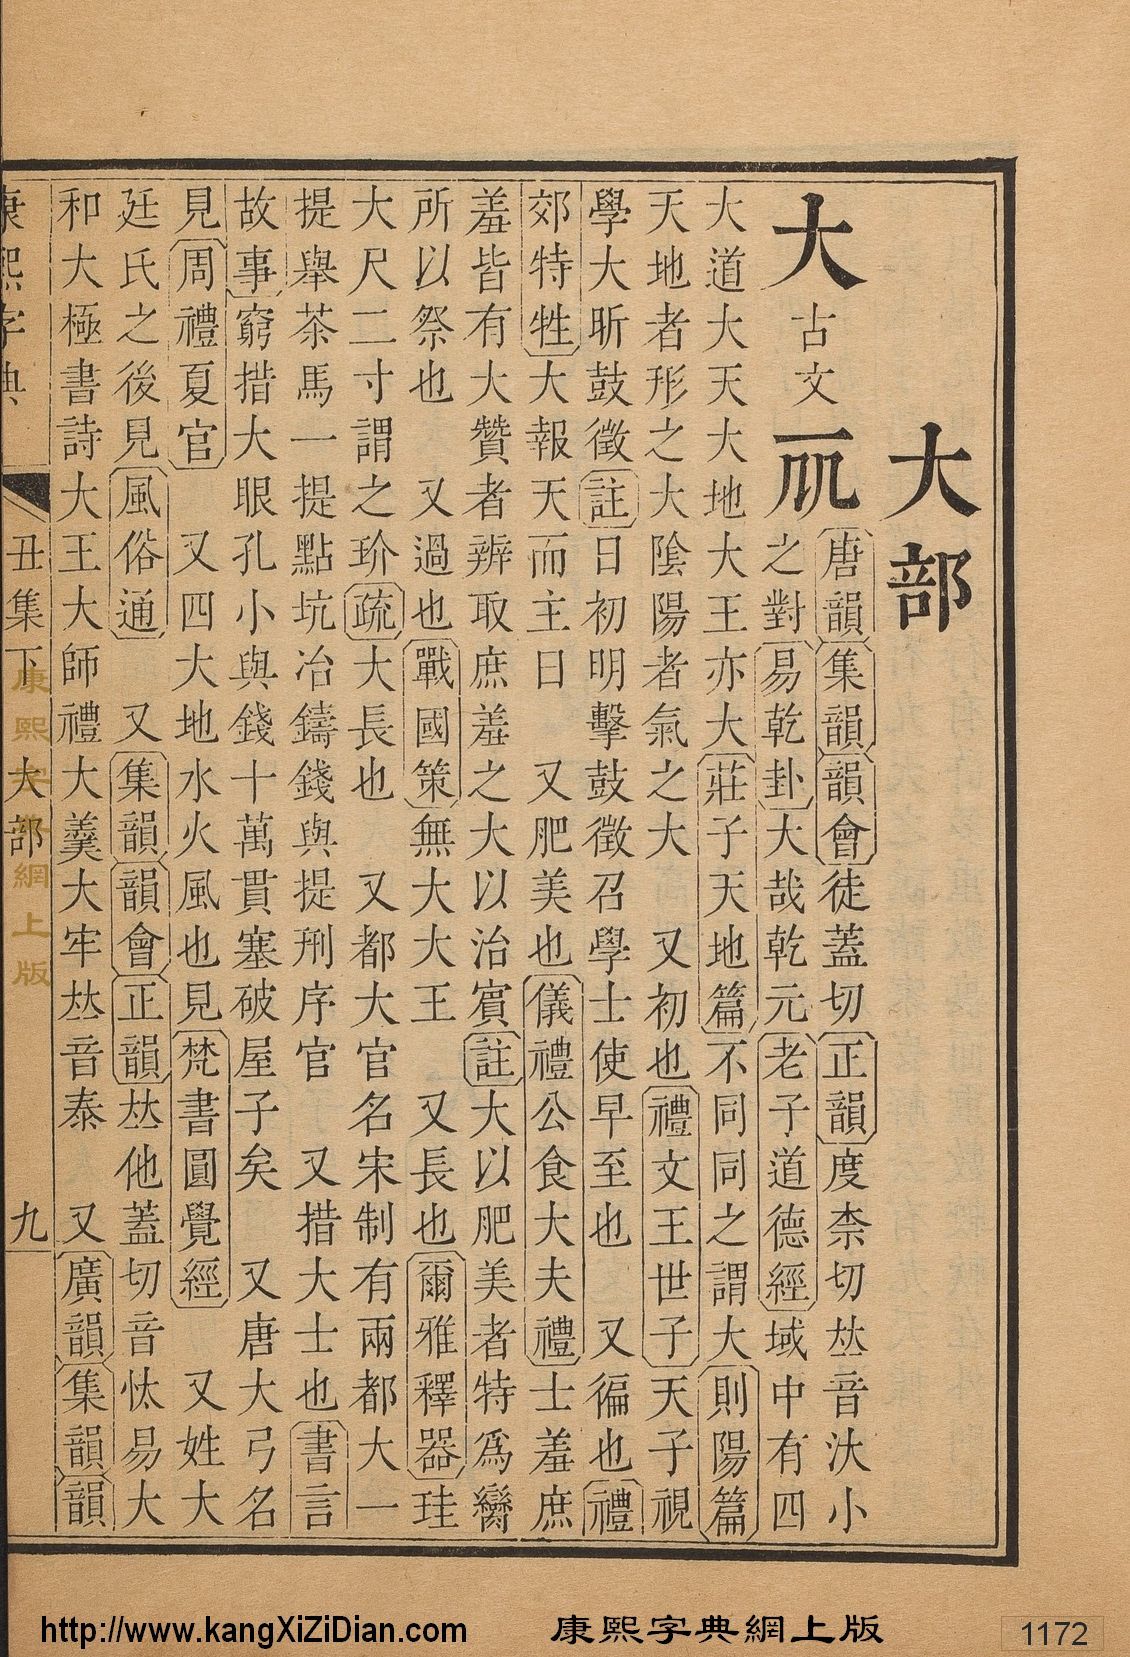 大部
大 古文
唐韻集韻韻會徒蓋切正韻度柰切𠀤音汏小
之對易乾卦大哉乾元老子道德經域中有四
大道大天大地大王亦大莊子天地篇不同同之謂大則陽篇
天地者形之大陰陽者氣之大 又初也禮文王世子天子視
學大昕鼓徵註日初明擊鼓徵召學士使早至也 又徧也禮
郊特牲大報天而主日 又肥美也儀禮公食大夫禮士羞庶
羞皆有大贊者辨取庶羞之大以治賓註大以肥美者特爲臠
所以祭也 又過也戰國策無大大王 又長也爾雅釋器珪
大尺二寸謂之玠疏大長也 又都大官名宋制有兩都大一
提舉茶馬一提點坑冶鑄錢與提刑序官 又措大士也書言
故事窮措大眼孔小與錢十萬貫塞破屋子矣 又唐大弓名
見周禮夏官 又四大地水火風也見梵書圓覺經 又姓大
廷氏之後見風俗通 又集韻韻會正韻𠀤他蓋切音忲易大
和大極書詩大王大師禮大羹大牢𠀤音泰 又廣韻集韻韻
康熙字典 丑集下 大部 九
康熙字典網上版
http://www.kangXiZiDian.com 康熙字典網上版 1172